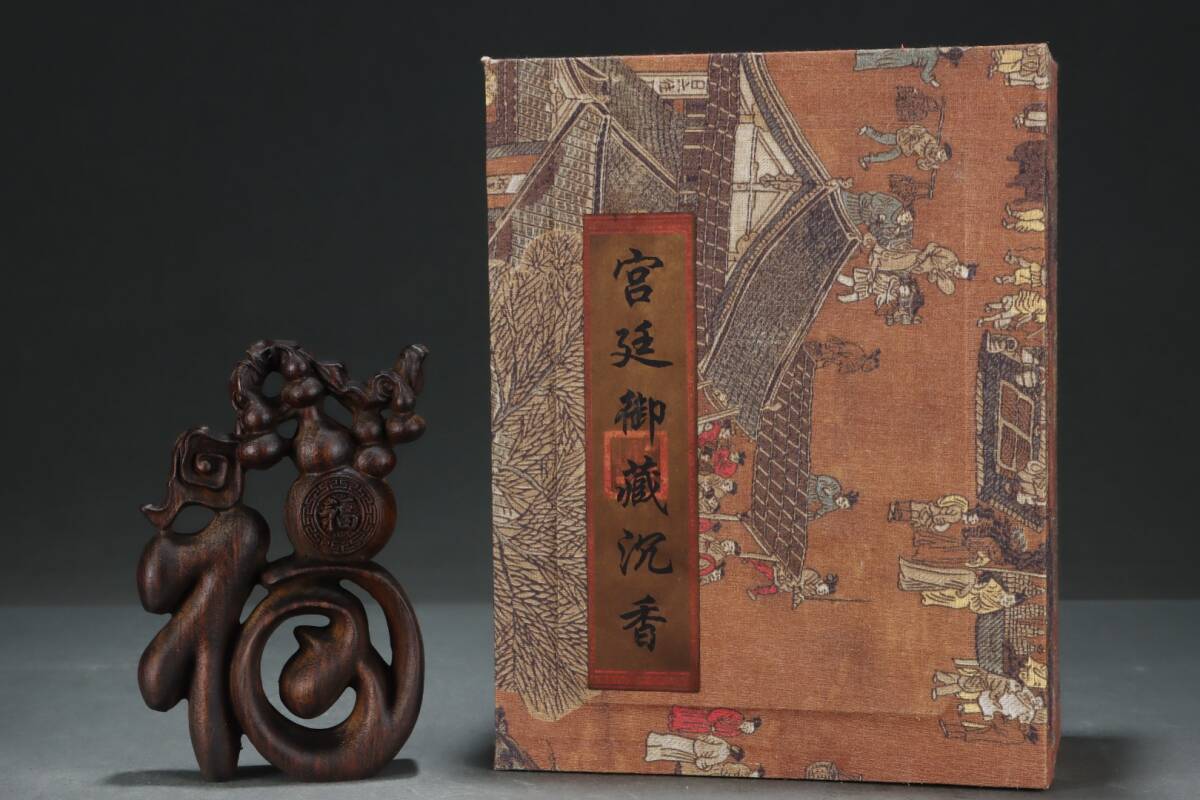 宫廷御藏沉香
福